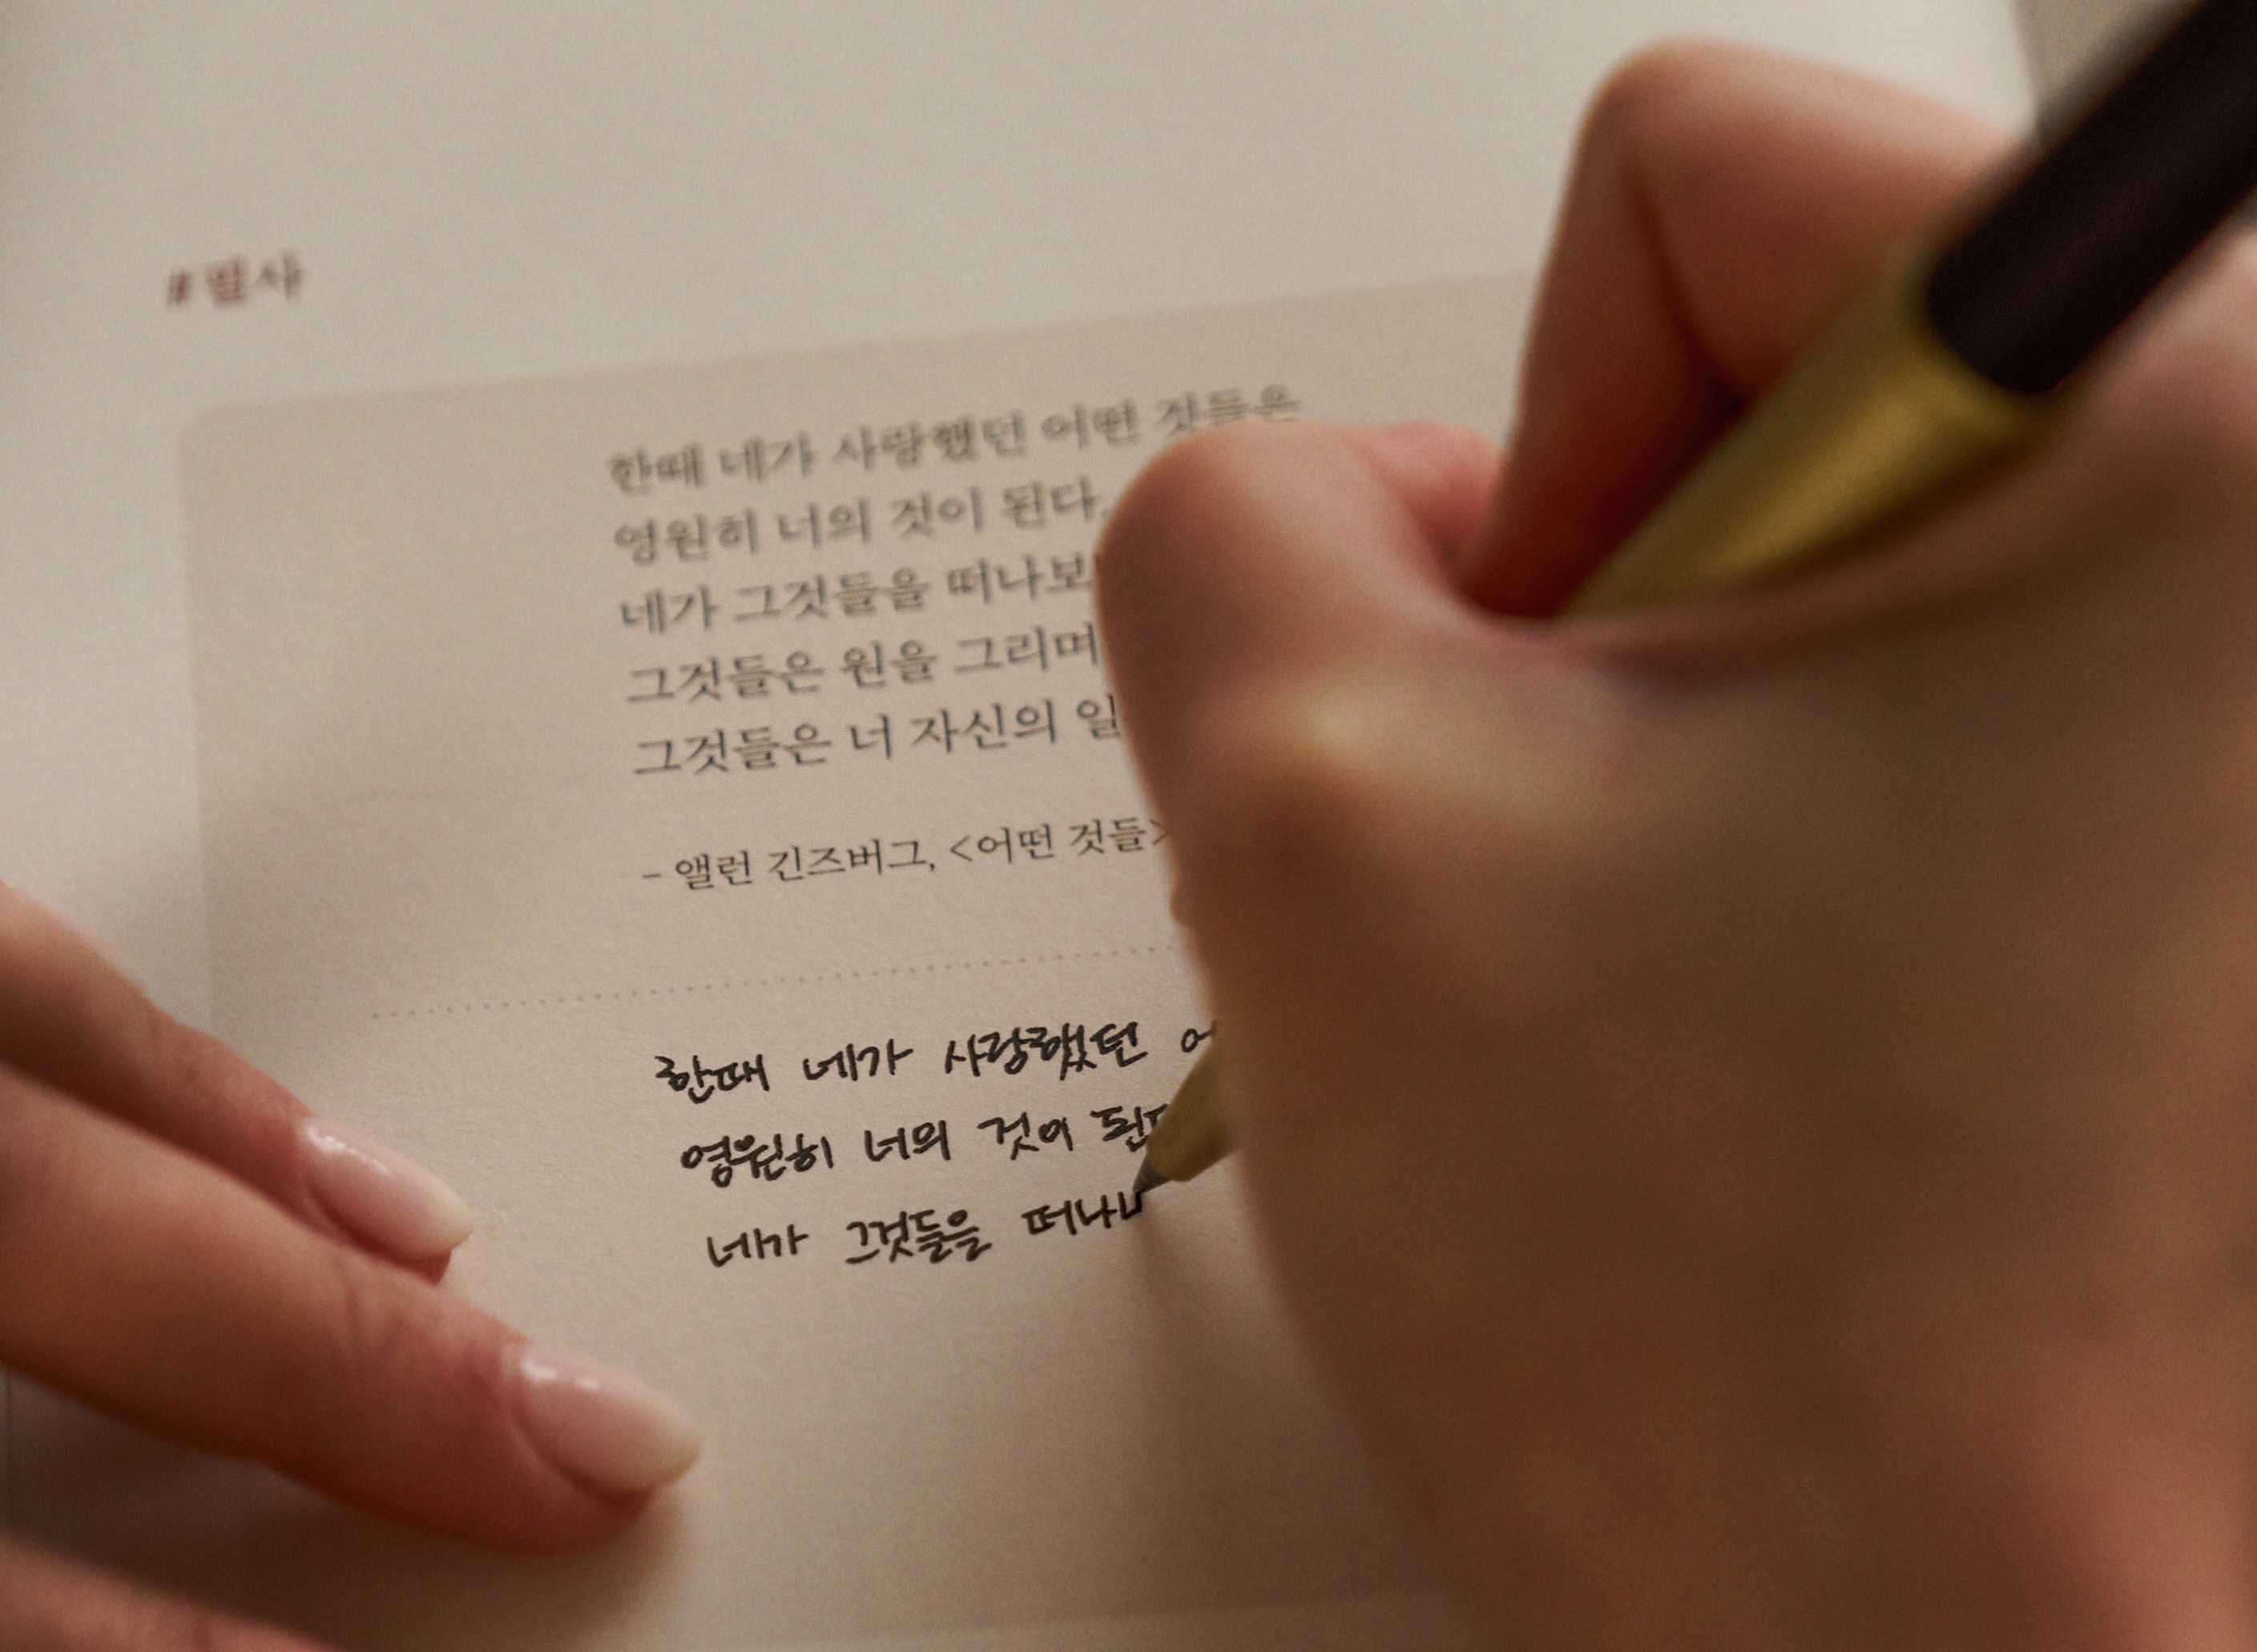 #필사
한때 네가 사랑했던 어떤 것들은
영원히 너의 것이 된다.
네가 그것들을 떠나보
그것들은 원을 그리며
그것들은 너 자신의 일
- 앨런 긴즈버그, <어떤 것들>
한때 네가 사랑했던 어
영원히 너의 것이 된다
네가 그것들을 떠나